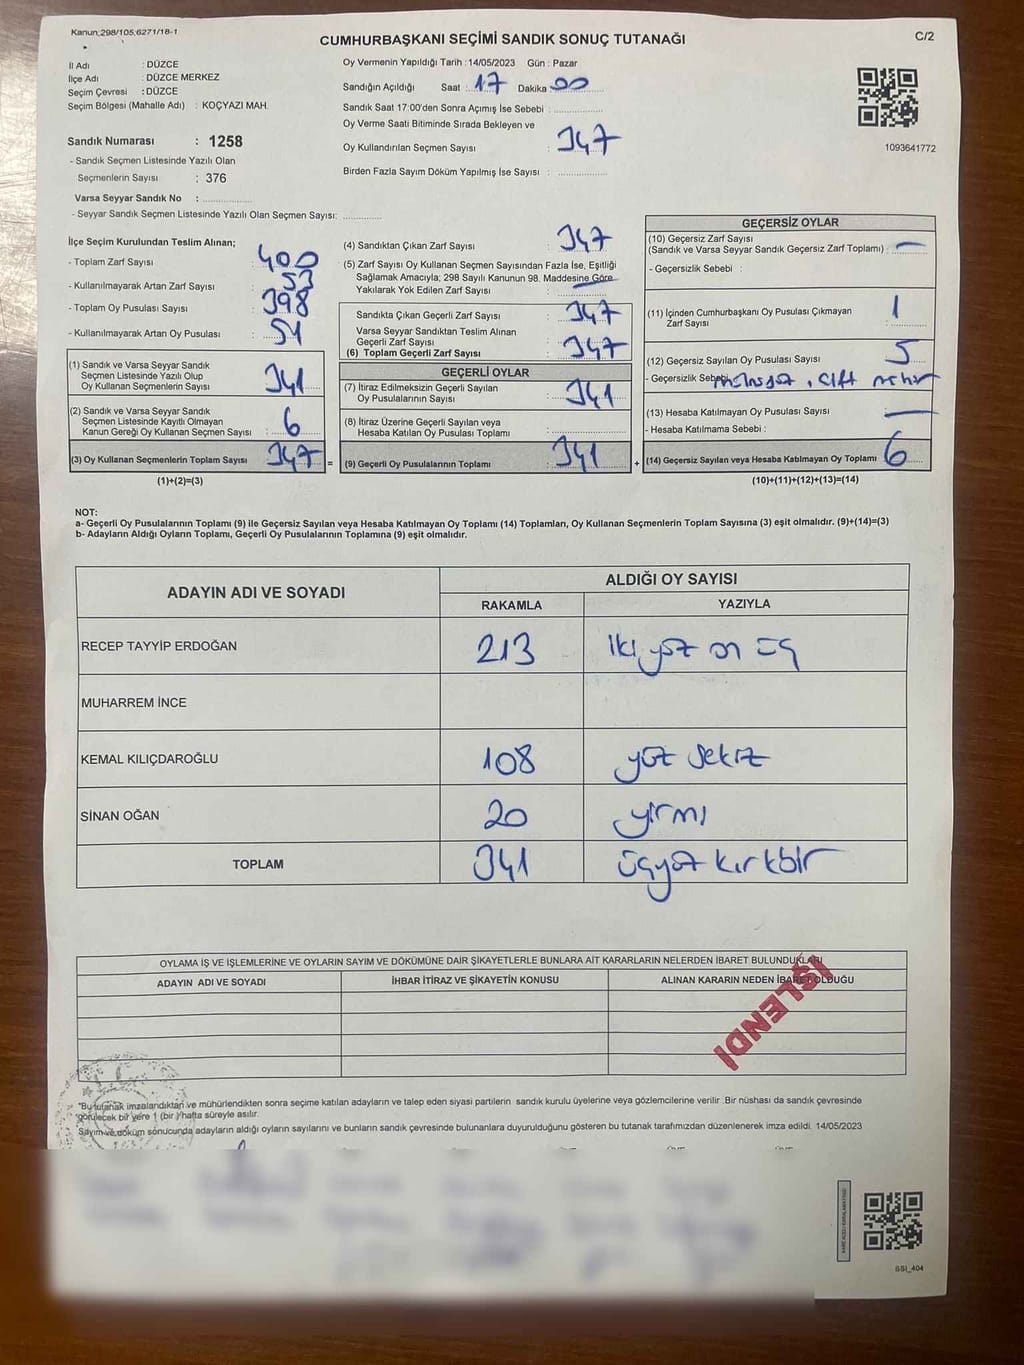 Kanun:298/105,6271/18-1
CUMHURBAŞKANI SEÇİMİ SANDIK SONUÇ TUTANAĞI
C/2
İl Adı : DÜZCE
İlçe Adı : DÜZCE MERKEZ
Seçim Çevresi : DÜZCE
Seçim Bölgesi (Mahalle Adı) : KOÇYAZI MAH.
Sandık Numarası : 1258
- Sandık Seçmen Listesinde Yazılı Olan
Seçmenlerin Sayısı : 376
Varsa Seyyar Sandık No :
- Seyyar Sandık Seçmen Listesinde Yazılı Olan Seçmen Sayısı:
Oy Vermenin Yapıldığı Tarih : 14/05/2023 Gün : Pazar
Sandığın Açıldığı Saat : 17 Dakika : 00
Sandık Saat 17:00'den Sonra Açımış İse Sebebi :
Oy Verme Saati Bitiminde Sırada Bekleyen ve
Oy Kullandırılan Seçmen Sayısı : 347
Birden Fazla Sayım Döküm Yapılmış İse Sayısı :
1093641772
İlçe Seçim Kurulundan Teslim Alınan;
- Toplam Zarf Sayısı : 400
- Kullanılmayarak Artan Zarf Sayısı : 53
- Toplam Oy Pusulası Sayısı : 398
- Kullanılmayarak Artan Oy Pusulası : 51
(1) Sandık ve Varsa Seyyar Sandık
Seçmen Listesinde Yazılı Olup
Oy Kullanan Seçmenlerin Sayısı : 341
(2) Sandık ve Varsa Seyyar Sandık
Seçmen Listesinde Kayıtlı Olmayan
Kanun Gereği Oy Kullanan Seçmen Sayısı : 6
(3) Oy Kullanan Seçmenlerin Toplam Sayısı : 347 =
(1)+(2)=(3)
(4) Sandıktan Çıkan Zarf Sayısı : 347
(5) Zarf Sayısı Oy Kullanan Seçmen Sayısından Fazla İse, Eşitliği
Sağlamak Amacıyla; 298 Sayılı Kanunun 98. Maddesine Göre
Yakılarak Yok Edilen Zarf Sayısı : —
Sandıkta Çıkan Geçerli Zarf Sayısı : 347
Varsa Seyyar Sandıktan Teslim Alınan
Geçerli Zarf Sayısı
(6) Toplam Geçerli Zarf Sayısı : 347
GEÇERLİ OYLAR
(7) İtiraz Edilmeksizin Geçerli Sayılan
Oy Pusulalarının Sayısı : 341
(8) İtiraz Üzerine Geçerli Sayılan veya
Hesaba Katılan Oy Pusulası Toplamı :
(9) Geçerli Oy Pusulalarının Toplamı : 341 +
GEÇERSİZ OYLAR
(10) Geçersiz Zarf Sayısı
(Sandık ve Varsa Seyyar Sandık Geçersiz Zarf Toplamı) : —
- Geçersizlik Sebebi :
(11) İçinden Cumhurbaşkanı Oy Pusulası Çıkmayan
Zarf Sayısı : 1
(12) Geçersiz Sayılan Oy Pusulası Sayısı : 5
- Geçersizlik Sebebi çift mühür
(13) Hesaba Katılmayan Oy Pusulası Sayısı : —
- Hesaba Katılmama Sebebi :
(14) Geçersiz Sayılan veya Hesaba Katılmayan Oy Toplamı : 6
(10)+(11)+(12)+(13)=(14)
NOT:
a- Geçerli Oy Pusulalarının Toplamı (9) ile Geçersiz Sayılan veya Hesaba Katılmayan Oy Toplamı (14) Toplamları, Oy Kullanan Seçmenlerin Toplam Sayısına (3) eşit olmalıdır. (9)+(14)=(3)
b- Adayların Aldığı Oyların Toplamı, Geçerli Oy Pusulalarının Toplamına (9) eşit olmalıdır.
ADAYIN ADI VE SOYADI
ALDIĞI OY SAYISI
RAKAMLA YAZIYLA
RECEP TAYYİP ERDOĞAN 213 İki yüz on üç
MUHARREM İNCE
KEMAL KILIÇDAROĞLU 108 yüz sekiz
SİNAN OĞAN 20 yirmi
TOPLAM 341 üçyüz kırkbir
OYLAMA İŞ VE İŞLEMLERİNE VE OYLARIN SAYIM VE DÖKÜMÜNE DAİR ŞİKAYETLERLE BUNLARA AİT KARARLARIN NELERDEN İBARET BULUNDUKLARI
ADAYIN ADI VE SOYADI İHBAR İTİRAZ VE ŞİKAYETİN KONUSU ALINAN KARARIN NEDEN İBARET OLDUĞU
İŞLENDİ
*Bu tutanak imzalandıktan ve mühürlendikten sonra seçime katılan adayların ve talep eden siyasi partilerin sandık kurulu üyelerine veya gözlemcilerine verilir. Bir nüshası da sandık çevresinde
görülecek bir yere 1 (bir) hafta süreyle asılır.
Sayım ve döküm sonucunda adayların aldığı oyların sayılarını ve bunların sandık çevresinde bulunanlara duyurulduğunu gösteren bu tutanak tarafımızdan düzenlenerek imza edildi. 14/05/2023
SSI_404